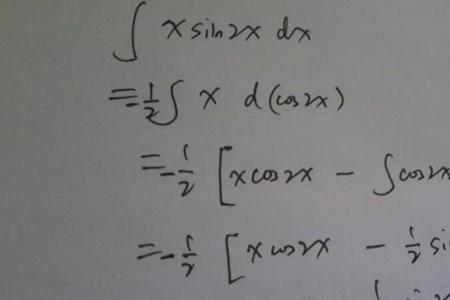 ∫ x sin2x dx
= -1/2 ∫ x d(cos2x)
= -1/2 [x cos2x - ∫ cos2x
= -1/2 [x cos2x - 1/2 si